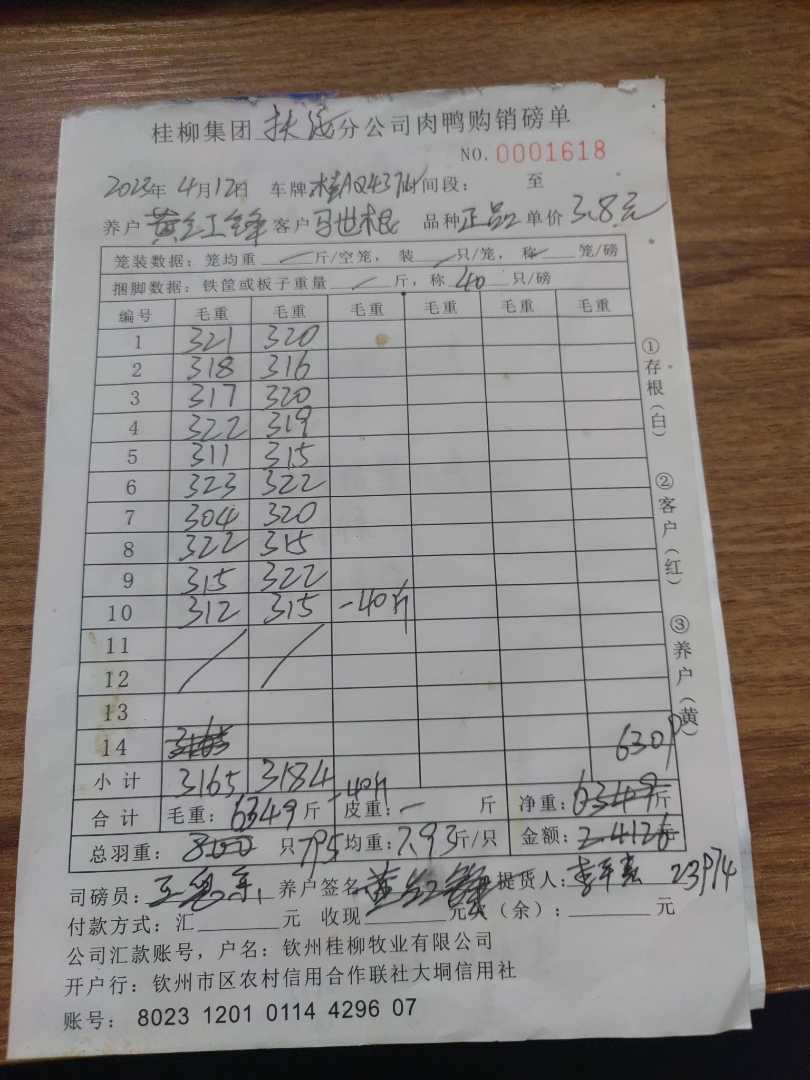 桂柳集团扶绥分公司肉鸭购销磅单
NO. 0001618
2023年 4月12日 车牌:桂AQ437W 时间段: 至
养户 黄红锋 客户 马世根 品种 正品 单价 3.8元
笼装数据: 笼均重 / 斤/空笼, 装 / 只/笼, 称 / 笼/磅
捆脚数据: 铁筐或板子重量 / 斤, 称 40 只/磅
编号 毛重 毛重 毛重 毛重 毛重 毛重
1 321 320
2 318 316
3 317 320
4 322 319
5 311 315
6 323 322
7 304 320
8 322 315
9 315 322
10 312 315 -40斤
11
12
13
14 3165 6309
小计 3165 3184 -40斤
合计 毛重: 6349 斤 皮重: 一 斤 净重: 6349 斤
总羽重: 800 只 795 均重: 7.93 斤/只 金额: 24126
司磅员: 养户签名 黄红锋 提货人: 23974
付款方式: 汇 元 收现 元 欠(余): 元
公司汇款账号, 户名: 钦州桂柳牧业有限公司
开户行: 钦州市区农村信用合作联社大垌信用社
账号: 8023 1201 0114 4296 07
①存根(白)
②客户(红)
③养户(黄)